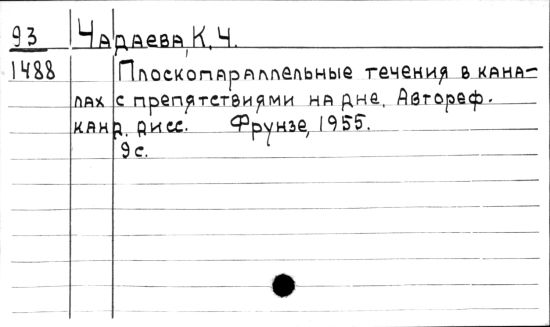 93 Чадаева, К. Ч.
1488 Плоскопараллельные течения в кана-
лах с препятствиями на дне. Автореф.
канд. дисс. Фрунзе, 1955.
9с.